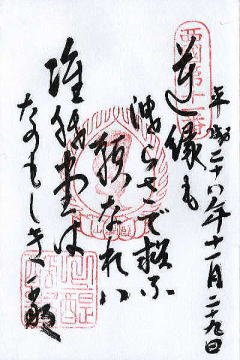 西國第十一番
平成二十八年十一月二十九日
逆縁も
洩らさで救ふ
願なれハ
准胝堂は
たのもしきかな